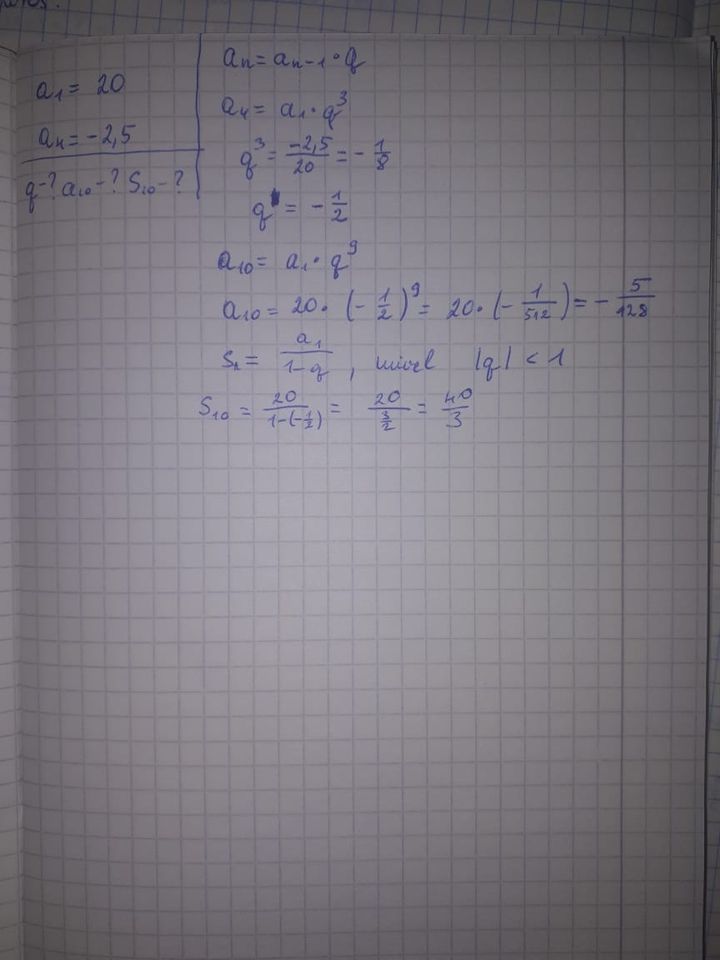 a₁ = 20
a₄ = -2,5
q-? a₁₀-? S₁₀-?
aₙ = aₙ₋₁ · q
a₄ = a₁ · q³
q³ = -2,5/20 = -1/8
q = -1/2
a₁₀ = a₁ · q⁹
a₁₀ = 20 · (-1/2)⁹ = 20 · (-1/512) = -5/128
S = a₁/(1-q), |q| < 1
S₁₀ = 20/(1-(-1/2)) = 20/(3/2) = 40/3